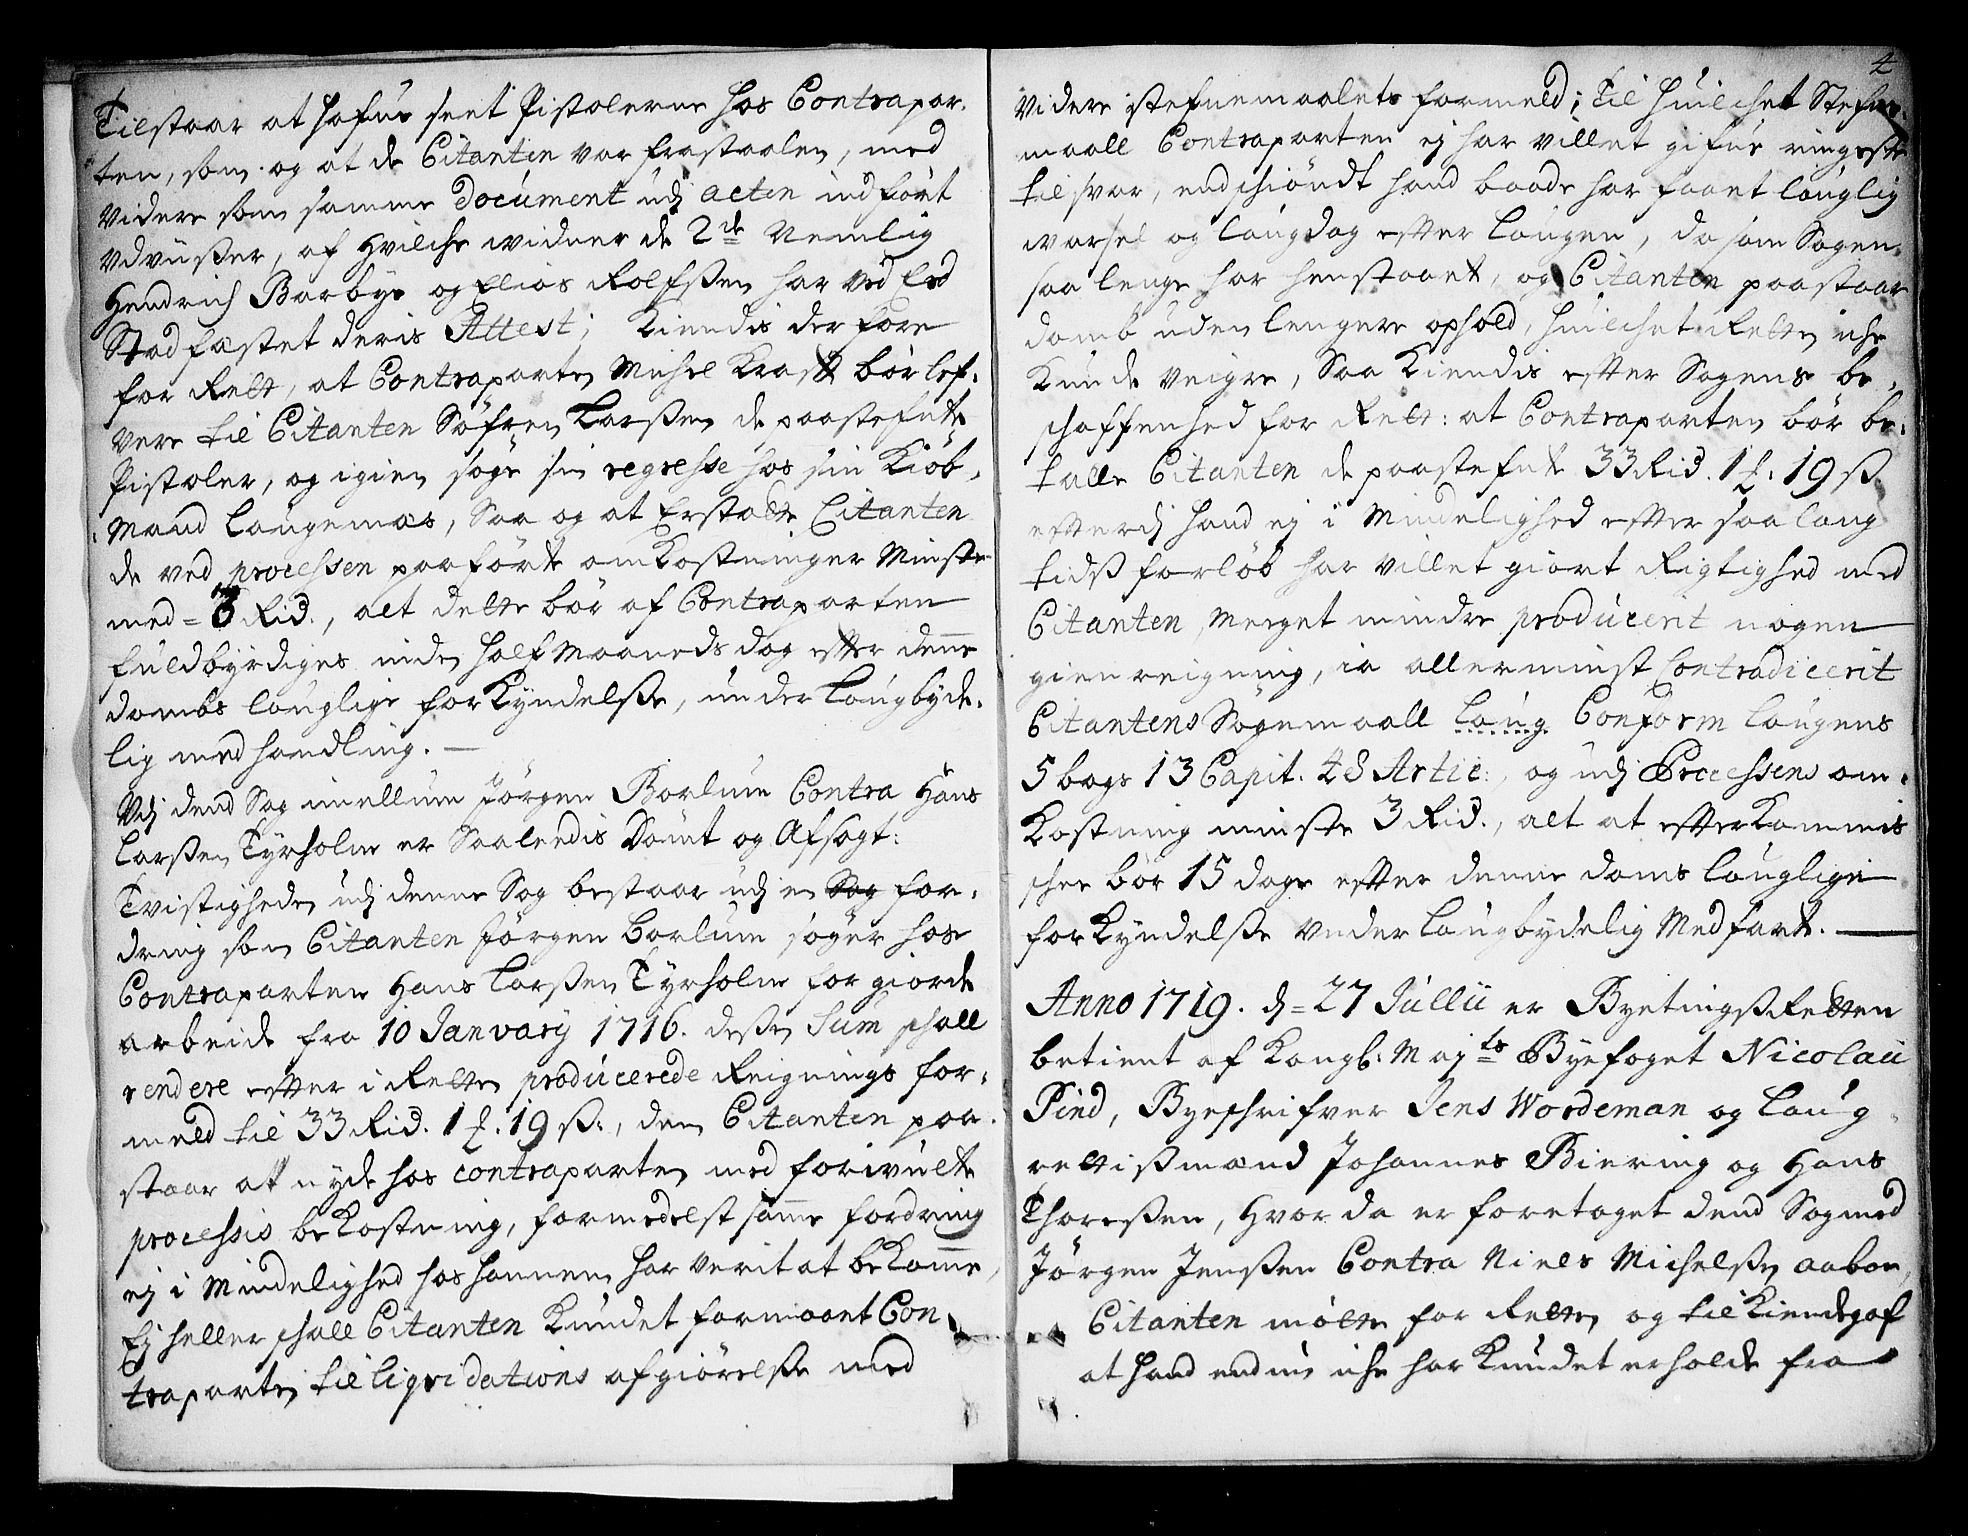 Tilstaar at hafve seet Pistolerne hos Contrapar-
ten, som og at de Citantin var frastaalen, med
videre som samme Document udj acten indført
udviser, af hvilche widner de 2de Nemlig
Hendrich Barbye og Elias Rolfsen har ved Eed
Stadfæstet deris Attest; Kiendis derfore
for Rett, at Contraparten Michel Krafft bør lef-
vere til Citanten Søfren Larsen de paastefnte
Pistoler, og igien søge sin regresse hos sin Kiøb-
mand Laugemas, Saa og at Erstatte Citanten
de ved processen paaførte omkostninger Minst
med = 3 Rid., alt dette bør af Contraparten
fuldbyrdiges inden half Maaneds dag effter denne
dombs louglige forkyndelse, under Lougbyde-
lig medhandling. —
Udj dend Sag imellum Jørgen Borlum Contra Hans
Larsen Tyrholm er Saaledis Dømt og Afsagt:
Tvistigheden udj denne Sag bestaar udj en Sag for-
dring som Citanten Jørgen Borlum søger hos
Contraparten Hans Larsen Tyrholm for giorde
arbeide fra 10 Janvary 1716. desen Sum schall
rendere effter i Retten producerede Reignings for-
meld til 33 Rid. 1 ℔. 19 ß., den Citanten paa-
staar at nyde hos contraparten med forvulte
processis bekostning, formedelst samme fordring
ej i Mindelighed hos hannem har verit at bekomme,
Ej heller schall Citanten kundet formaaet Con-
traparten til liqvidations afgiørelse med
4
videre stefnemaalets formeld; til huilchet Stefne-
maall Contraparten ej har villet gifve ringeste
tilsvar, endschiøndt hand baade har faaet louglig
warsel og lougdag effter Lougen, da som Sagen
saa lenge har henstaaet, og Citanten paastaar
domb uden lengere ophold, huilchet Retten iche
kunde veigre, Saa Kiendis effter Sagens be-
schaffenhed for Rett: at Contraparten bør be-
talle Citanten de paastefnte 33 Rid. 1 ℔. 19 ß.
efterdj hand ej i Mindelighed effter saa lang
tids forløb har villet giort Rigtighed med
Citanten, Meeget mindre producerit nogen
gienreigning, ia allerminst Contradicerit
Citantens Søgemaall Loug Conform Lougens
5 bogs 13 Capit. 48 Artic:, og udj Processens om-
kostning minste 3 Rid., alt at effterkommis
schee bør 15 dage effter denne doms louglige
forkyndelse under Lougbydelig Medfart. —
Anno 1719. d = 27 Jullii er Byetings Retten
betient af Kongl: Majts Byefoget Nicolaii
Pind, Byeschrifver Jens Wordeman og Loug-
rettismænd Johannes Biering og Hans
Thoresen, hvor da er foretaget dend Sag med
Jørgen Jensen Contra Niels Michelsen aaboe,
Citanten møtte for Retten og tilkiendegaf
at hand endnu iche har kundet erholde fra